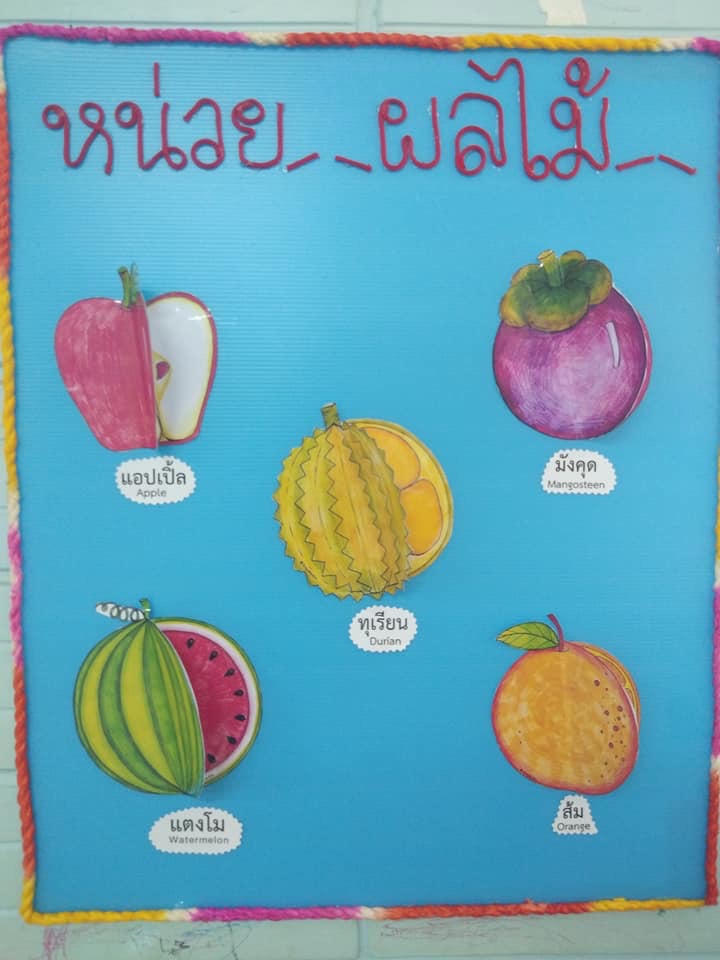 หน่วย ผลไม้
แอปเปิ้ล
Apple
มังคุด
Mangosteen
ทุเรียน
Durian
แตงโม
Watermelon
ส้ม
Orange